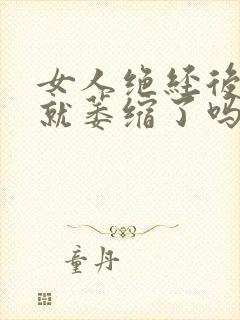 女人绝经后
就萎缩了吗
童丹